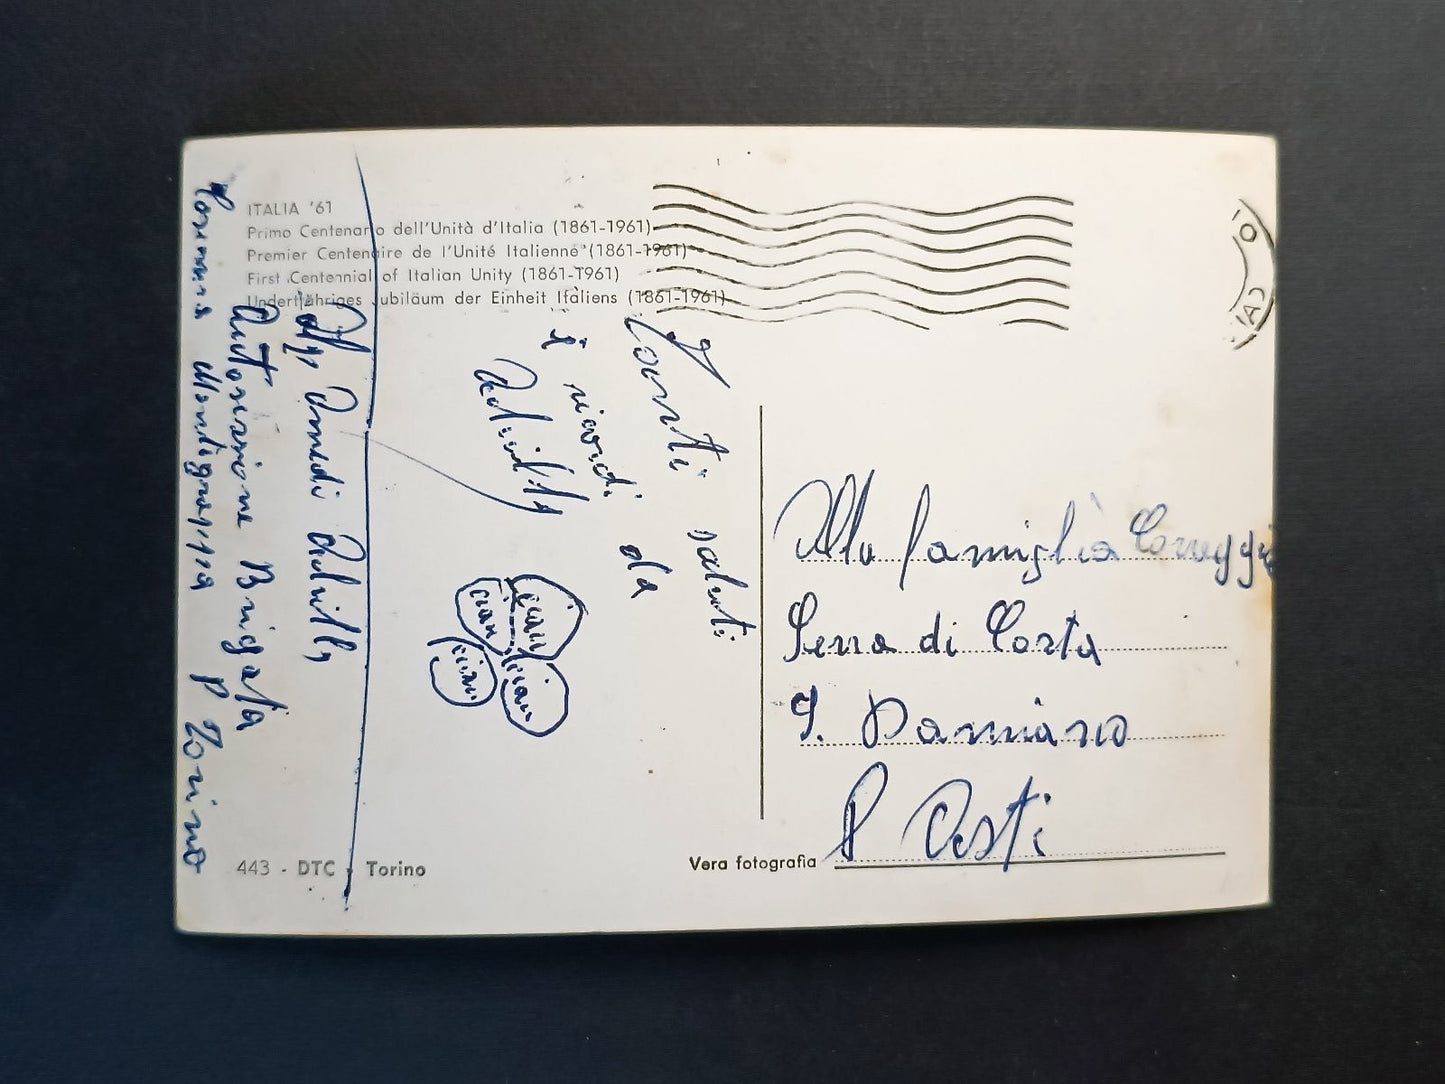 ITALIA '61
Primo Centenario dell'Unità d'Italia (1861-1961)
Premier Centenaire de l'Unité Italienne (1861-1961)
First Centennial of Italian Unity (1861-1961)
Undertjähriges Jubiläum der Einheit Italiens (1861-1961)
Tanti saluti
i ricordi da
Achille
cian cian
cian cian
Amedi Achille
Autosezione Brigata
Caserma Montegrappa P Torino
Alla famiglia
Serra di Costa
S. Damiano
P Asti
443 - DTC - Torino
Vera fotografia